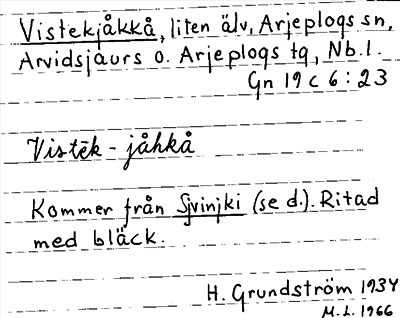 Vistekjåkkå, liten älv, Arjeplogs sn,
Arvidsjaurs o. Arjeplogs tg, Nb.l.
Gn 19 c 6 : 23
Vistēk - jåhkå
Kommer från Sjvinjki (se d.). Ritad
med bläck.
H. Grundström 1934
M.L. 1966